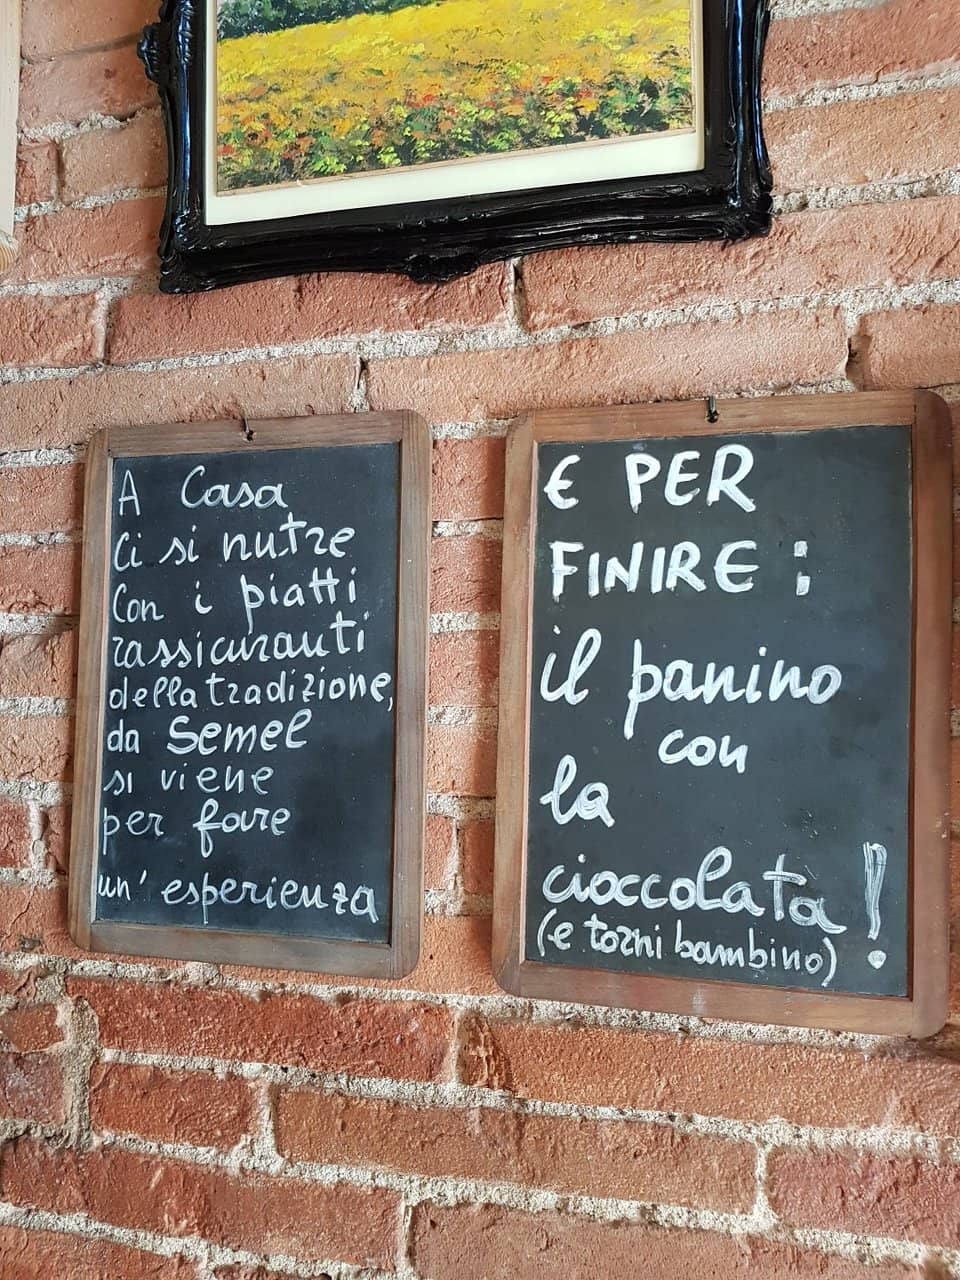 A Casa
Ci si nutre
Con i piatti
rassicuranti
della tradizione,
da Semel
si viene
per fare
un' esperienza
E PER
FINIRE:
il panino
con
la
cioccolata!
(e torni bambino)